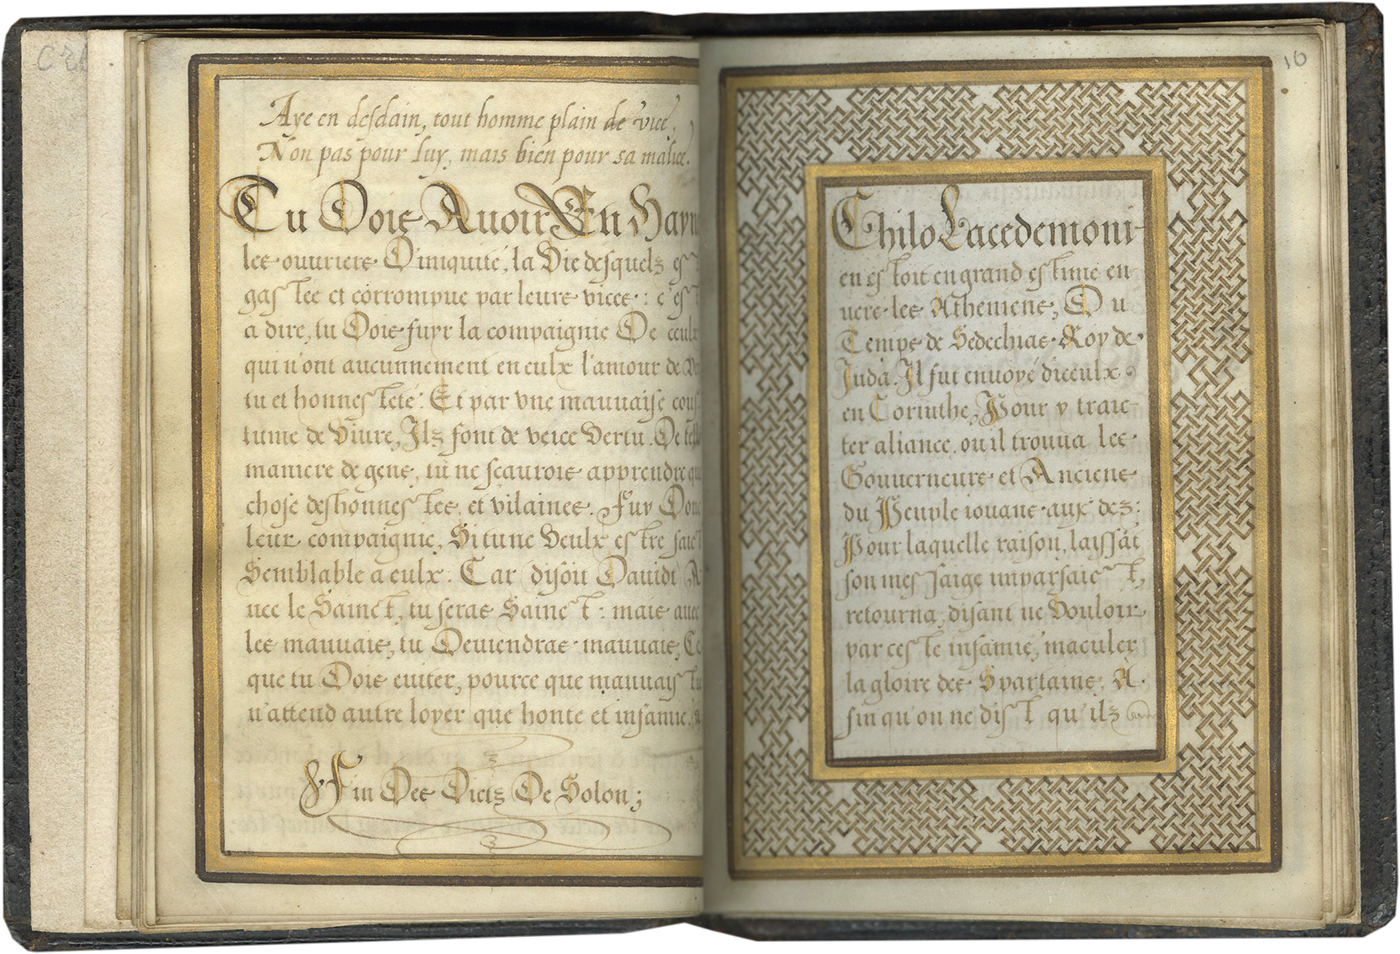 Aye en desdain, tout homme plain de vice,
Non pas pour luy, mais bien pour sa malice.
Tu Dois Auoir En Hayn
les ouuriers D'iniquité, la Vie desquelz es
gastee et corrompue par leurs vices : c'est
a dire, tu Dois fuyr la compaignie De ceulx
qui n'ont aucunnement en eulx l'amour de Ver
tu et honnesteté. Et par vne mauuaise cous
tume de Viure, Ilz font de veice Vertu. De telle
maniere de gens, tu ne scaurois apprendre que
chose deshonnestes, et vilaines. Fuy Donc
leur compaignie, Si tu ne Veulx estre faict
Semblable a eulx. Car disoit Dauid: A
uec le Sainct, tu seras Sainct : mais auec
les mauuais, tu Deuiendras mauuais; Ce
que tu Dois euiter, pource que mauuaystu
n'attend autre loyer que honte et infamie.
Fin Des Dictz De Solon;
10
Chilo Lacedemoni-
en estoit en grand estime en
uers les Atheniens, Du
Temps de Sedechias Roy de
Juda. Il fut enuoyé d'iceulx
en Corinthe, Pour y traic
ter aliance, ou il trouua les
Gouuerneurs et Anciens
du Peuple iouans aux dez:
Pour laquelle raison, laissāt
son messaige imparfaict,
retourna, disant ne Vouloir
par ceste infamie, maculer
la gloire des Spartains, A
fin qu'on ne dist qu'ilz